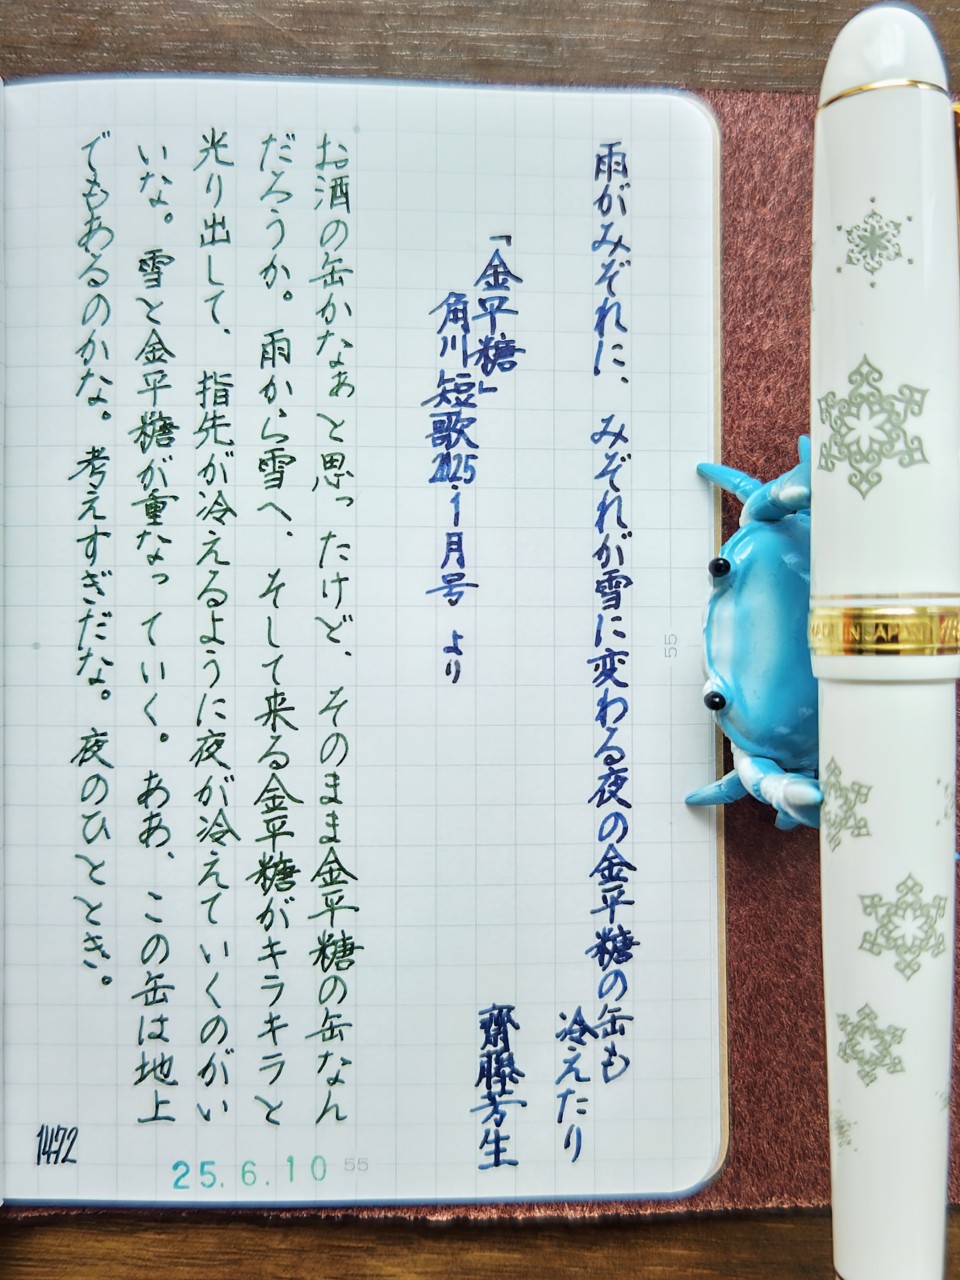 雨がみぞれに、みぞれが雪に変わる夜の金平糖の缶も
冷えたり
齋藤芳生
「金平糖」
角川短歌2025.1月号 より
お酒の缶かなぁと思ったけど、そのまま金平糖の缶なん
だろうか。雨から雪へ、そして来る金平糖がキラキラと
光り出して、指先が冷えるように夜が冷えていくのがい
いな。雪と金平糖が重なっていく。ああ、この缶は地上
でもあるのかな。考えすぎだな。夜のひととき。
1472
25.6.10
55
55
MADE IN JAPAN